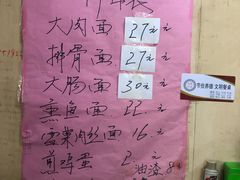 大肉面 27元
排骨面 27元
大肠面 30元
熏鱼面 22元
雪菜肉丝面 16元
煎鸡蛋 2元
油渣 8
节俭养德 文明餐桌